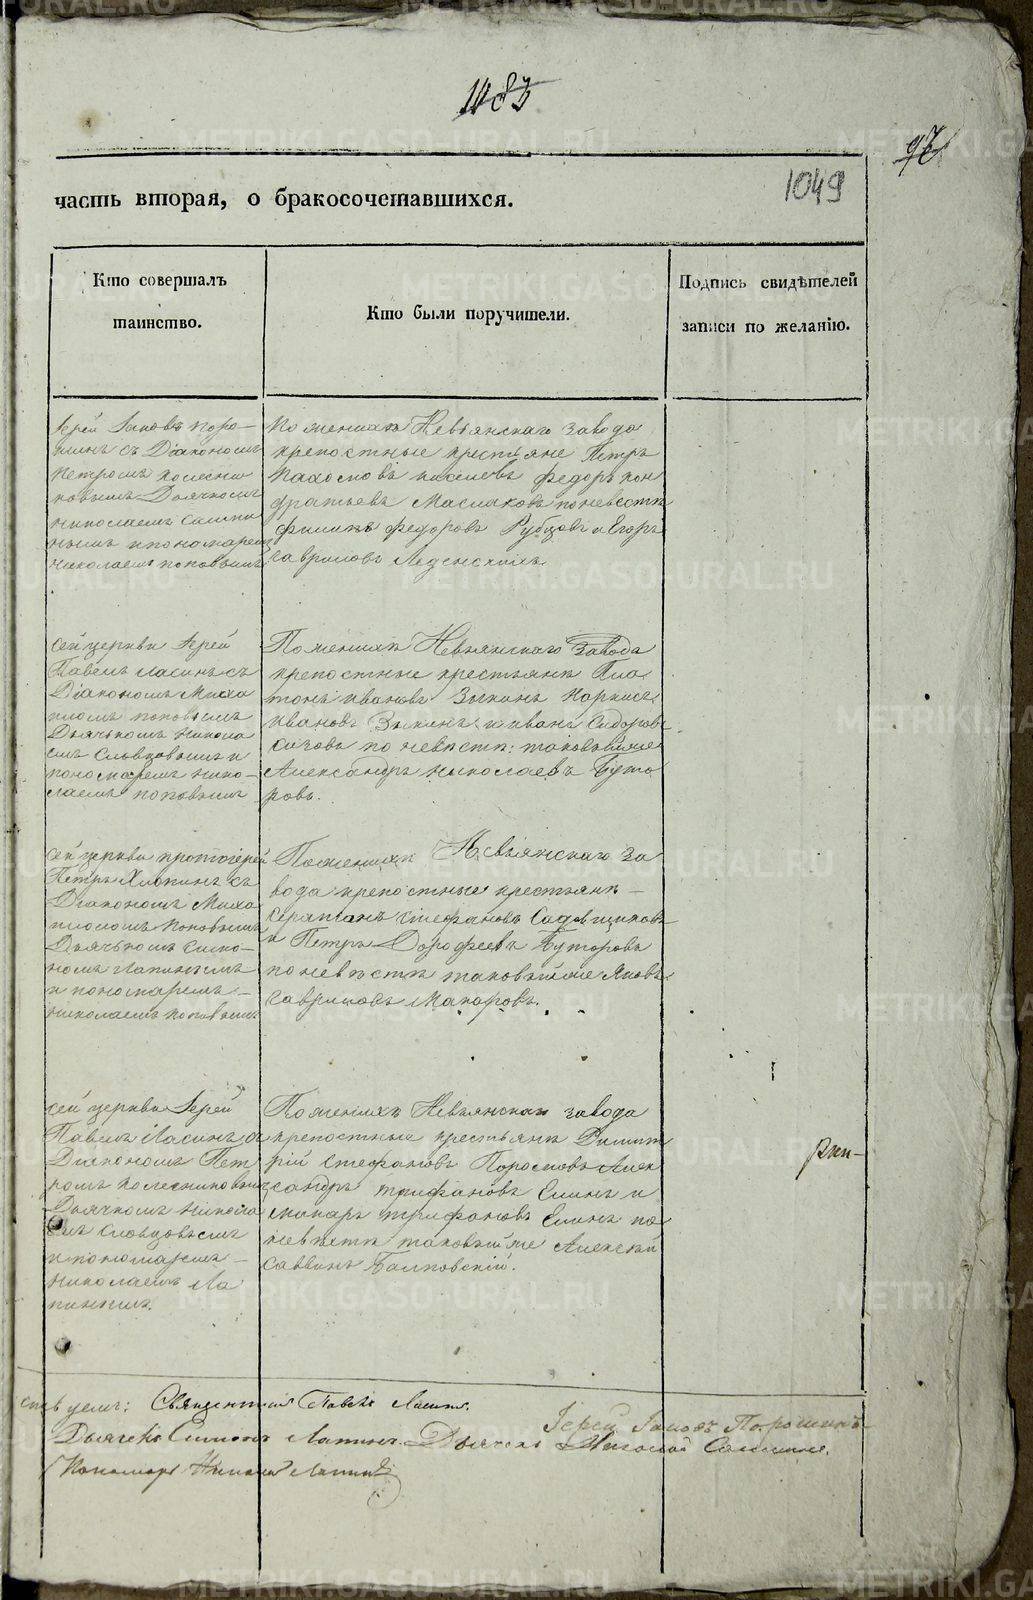 1049
часть вторая, о бракосочетавшихся.
Кто совершалъ
таинство.
Кто были поручители.
Подпись свидѣтелей
записи по желанію.
Іерей Іаковъ Поро-
шинъ съ Діакономъ
Петромъ Колесни
ковымъ Дьячкомъ
Николаемъ
нымъ и пономаремъ
Николаемъ Поповымъ
По женихѣ Невьянскаго завода
крепостные крестьяне Петръ
Киселевъ Федоръ Кон
дратьевъ Маслаковъ по невестѣ
Филипъ Федоровъ Рубцовъ и Егоръ
Гавриловъ
Сей церкви Іерей
Павелъ Ласинъ съ
Діакономъ Миха
иломъ Поповымъ
Дьячкомъ Никола
емъ Словцовымъ и
пономаремъ Нико-
лаемъ Поповымъ
По женихѣ Невьянскаго завода
крепостные крестьяне Пла
тонъ Ивановъ Зыкинъ Наркисъ
Ивановъ Зыкинъ и Иванъ Сидоровъ
по невѣсте: таковыйже
Александръ Николаевъ Буто
ровъ.
Сей церкви протоіерей
Петръ Хлопинъ съ
Діакономъ Миха
иломъ Поповымъ
Дьячкомъ Симо-
номъ Лапинымъ
и пономаремъ-
Николаемъ Поповымъ
По женихѣ Невьянскаго за
вода крепостные крестьяне-
Серапіанъ Стефановъ Садовщиковъ
и Петръ Дорофеевъ Буторовъ
по невѣсте таковыйже Яковъ
Гавриловъ Макаровъ.
Сей церкви Іерей
Павелъ Ласинъ съ
Діакономъ Пет
ромъ Колесниковымъ
Дьячкомъ Никола
емъ Словцовымъ
и пономаремъ-
Николаемъ Ла
пинымъ.
По женихѣ Невьянскаго завода
крепостные крестьяне Димит
рій Стефановъ Алек
сандръ Трифановъ Елинъ и
Макаръ Трифановъ Елинъ по
невѣсте таковыйже Алексѣй
Саввинъ
Священникъ Павелъ Ласинъ.
Іерей Іаковъ Порошинъ
Дьячекъ Симонъ Лапинъ. Дьячекъ Николай
Пономарь Николай Лапинъ
METRIKI.GASO-URAL.RU